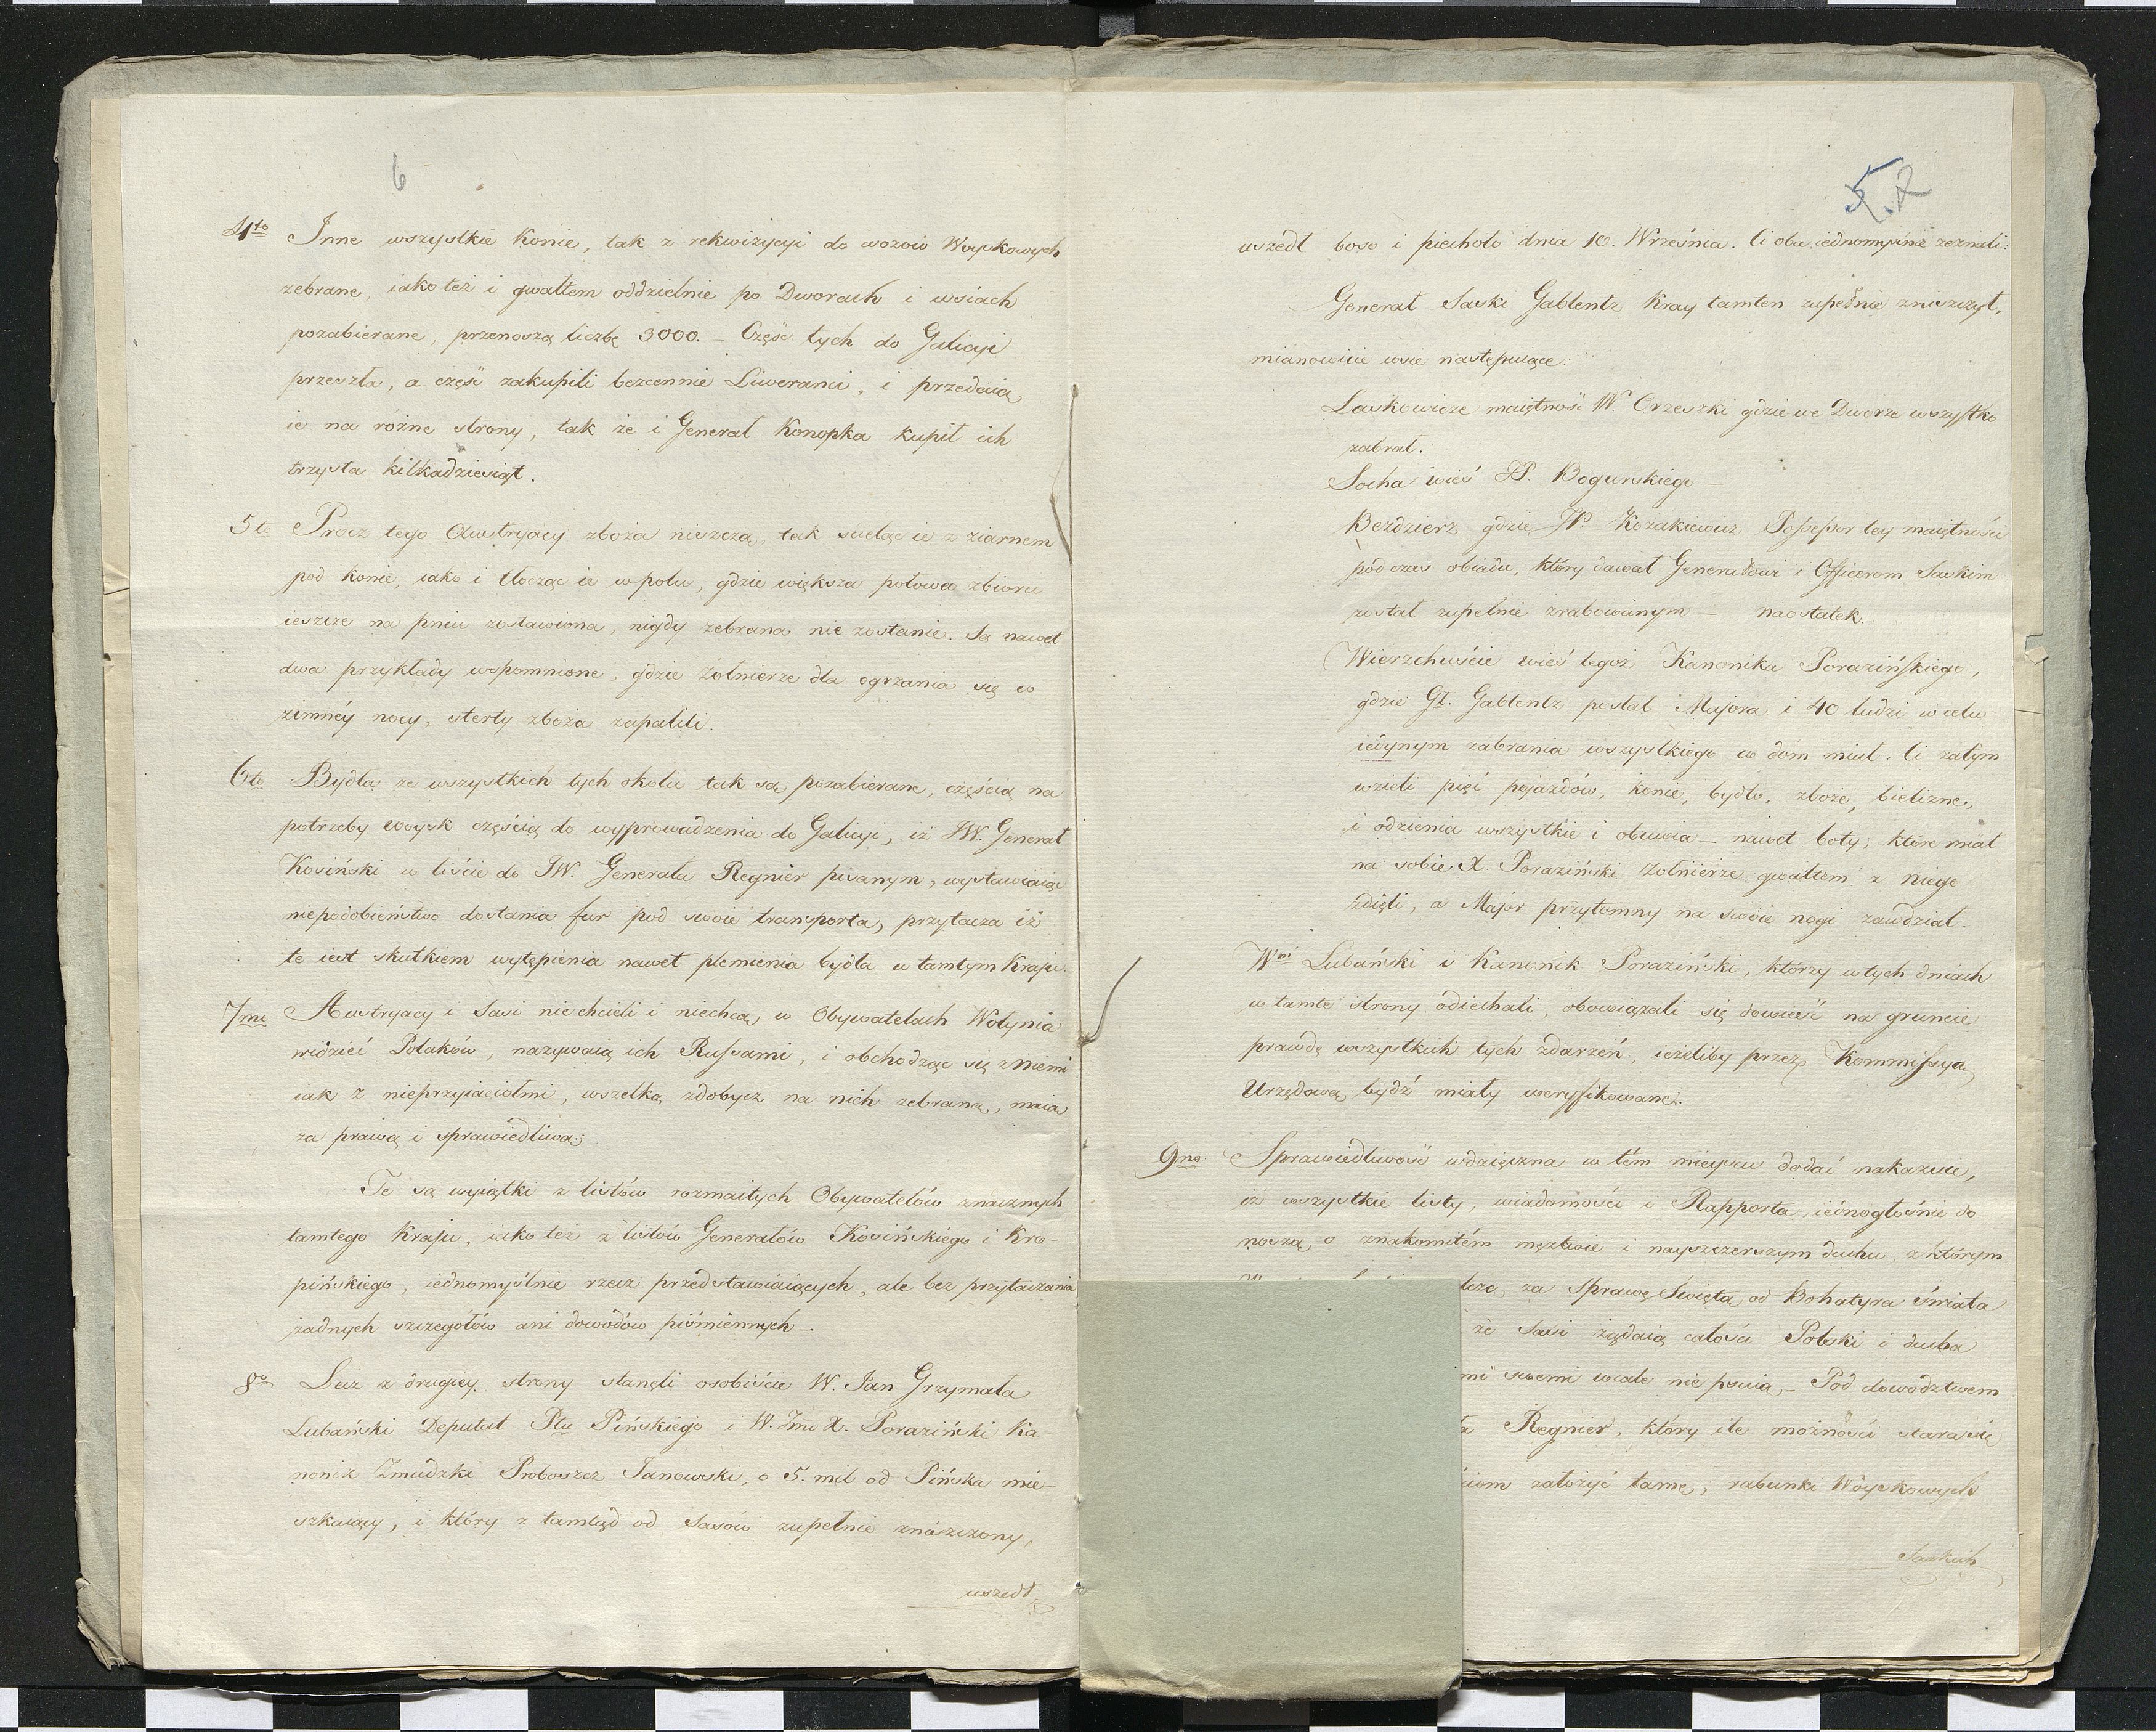 6
4to Inne wszystkie konie, tak z rekwizycyi do wozow Woyskowych
zebrane, iako też i gwałtem oddzielnie po Dworach i wsiach
pozabierane, przenoszą liczbę 3000. – Część tych do Galicyi
przeszła, a część zakupili bezcennie Liweranci, i przedaią
ie na różne strony, tak że i Generał Konopka kupił ich
trzysta kilkadziesiąt.
5to Procz tego Austryacy zboża niszczą, tak scieląc ie z ziarnem
pod konie, iako i tłocząc ie w polu, gdzie większa połowa zbioru
ieszcze na pniu zostawiona, nigdy zebrana nie zostanie. Są nawet
dwa przykłady wspomnione, gdzie żołnierze dla ogrzania się w
zimnéy nocy, sterty zboża zapalili.
6to Bydła ze wszystkich tych okolic tak są pozabierane, częścią na
potrzeby woysk częścią do wyprowadzenia do Galicyi, iż JW. Generał
Kosiński w liście do JW. Generała Regnier pisanym, wystawiaiąc
niepodobieństwo dostania fur pod swoie transporta, przytacza iż
to iest skutkiem wytępienia nawet plemienia bydła w tamtym Kraju.
7mo Austryacy i Sasi niechcieli i niechcą w Obywatelach Wołynia
widzieć Polaków, nazywaią ich Russami, i obchodząc się z niemi
iak z nieprzyiaciołmi, wszelką zdobycz na nich zebraną, maią
za prawą i sprawiedliwą.
Te są wyiątki z listów rozmaitych Obywatelów znacznych
tamtego Kraju, iako też z listów Generałów Kosińskiego i Kro-
pińskiego, iednomyślnie rzecz przedstawiaiących, ale bez przytaczania
żadnych szczegółów ani dowodów piśmiennych –
8o Lecz z drugiey strony stanęli osobiście W. Jan Grzymała
Lubański Deputat Ptu Pińskiego i W. Jmć X. Poraziński Ka-
nonik Zmudzki Proboszcz Janowski, o 5. mil od Pińska mie-
szkaiący, i który z tamtąd od Sasów zupełnie zniszczony,
uszedł
5.7
uszedł boso i piechoto dnia 10. Września. Ci oba iednomyśnie zeznali:
Generał Saski Gablentz Kray tamten zupełnie zniszczył,
mianowicie wsie następuiące:
Laskowicze maiętność W. Orzeszki gdzie we Dworze wszystko
zabrał.
Socha wieś P. Bogurskiego
Bezdzierz gdzie W. Kozakiewicz Possessor tey maiętności
podczas obiadu, który dawał Generałowi i Officerom Saskim
został zupełnie zrabowanym – naostatek.
Wierzchuście wieś tegoż Kanonika Porazińskiego,
gdzie Gł. Gablentz posłał Majora i 40 ludzi w celu
iedynym zabrania wszystkiego co dom miał. Ci zatym
wzieli pięć pojazdów, konie, bydło, zboże, bieliznę,
i odzienia wszystkie i obuwia – nawet boty, które miał
na sobie X. Poraziński żołnierze gwałtem z niego
zdięli, a Major przytomny na swoie nogi zawdział.
Wni Lubański i Kanonik Poraziński, którzy w tych dniach
w tamte strony odiechali, obowiązali się dowieść na gruncie
prawdę wszystkich tych zdarzeń, ieżeliby przez Kommissyą
Urzędową bydź miały weryfikowane.
9no. Sprawiedliwość wdzięczna w tém mieyscu dodać nakazuie,
iż wszystkie listy, wiadomości i Rapporta, iednogłośnie do
noszą o znakomitém męztwie i nayszczerszym duchu, z którym
za Sprawę Swiętą od Bohatyra świata
że Sasi żądaią całości Polski i ducha
mi swemi wcale nie psuią. – Pod dowodztwem
Regnier, który ile możności stara się
ciom założyć tamę, rabunki Woyskowych
Saskich